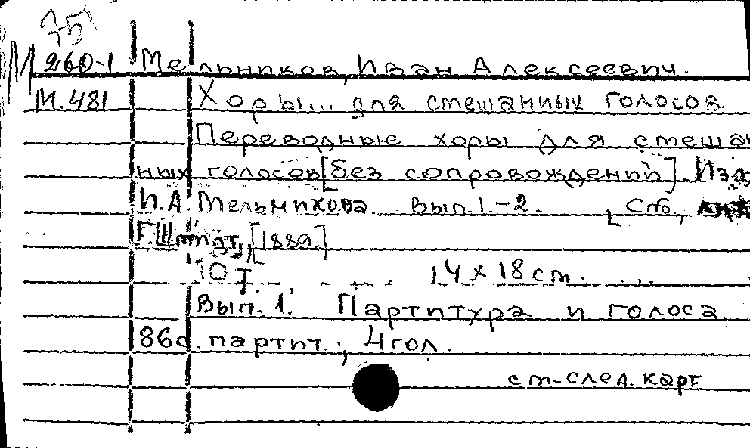 35
М 260-1 Мельников, Иван Алексеевич.
М.481 Хоры... для смешанных голосов
Переводные хоры для смешан
ных голосов [без сопровождений]. Изд
И.А. Мельникова. Вып.1.-2. Спб.,
Г. Шмидт, [1889.]
10 т. 14 х 18 cm.
Вып. 1. Партитура и голоса
86с. партит.; 4 гол.
см-след. карт